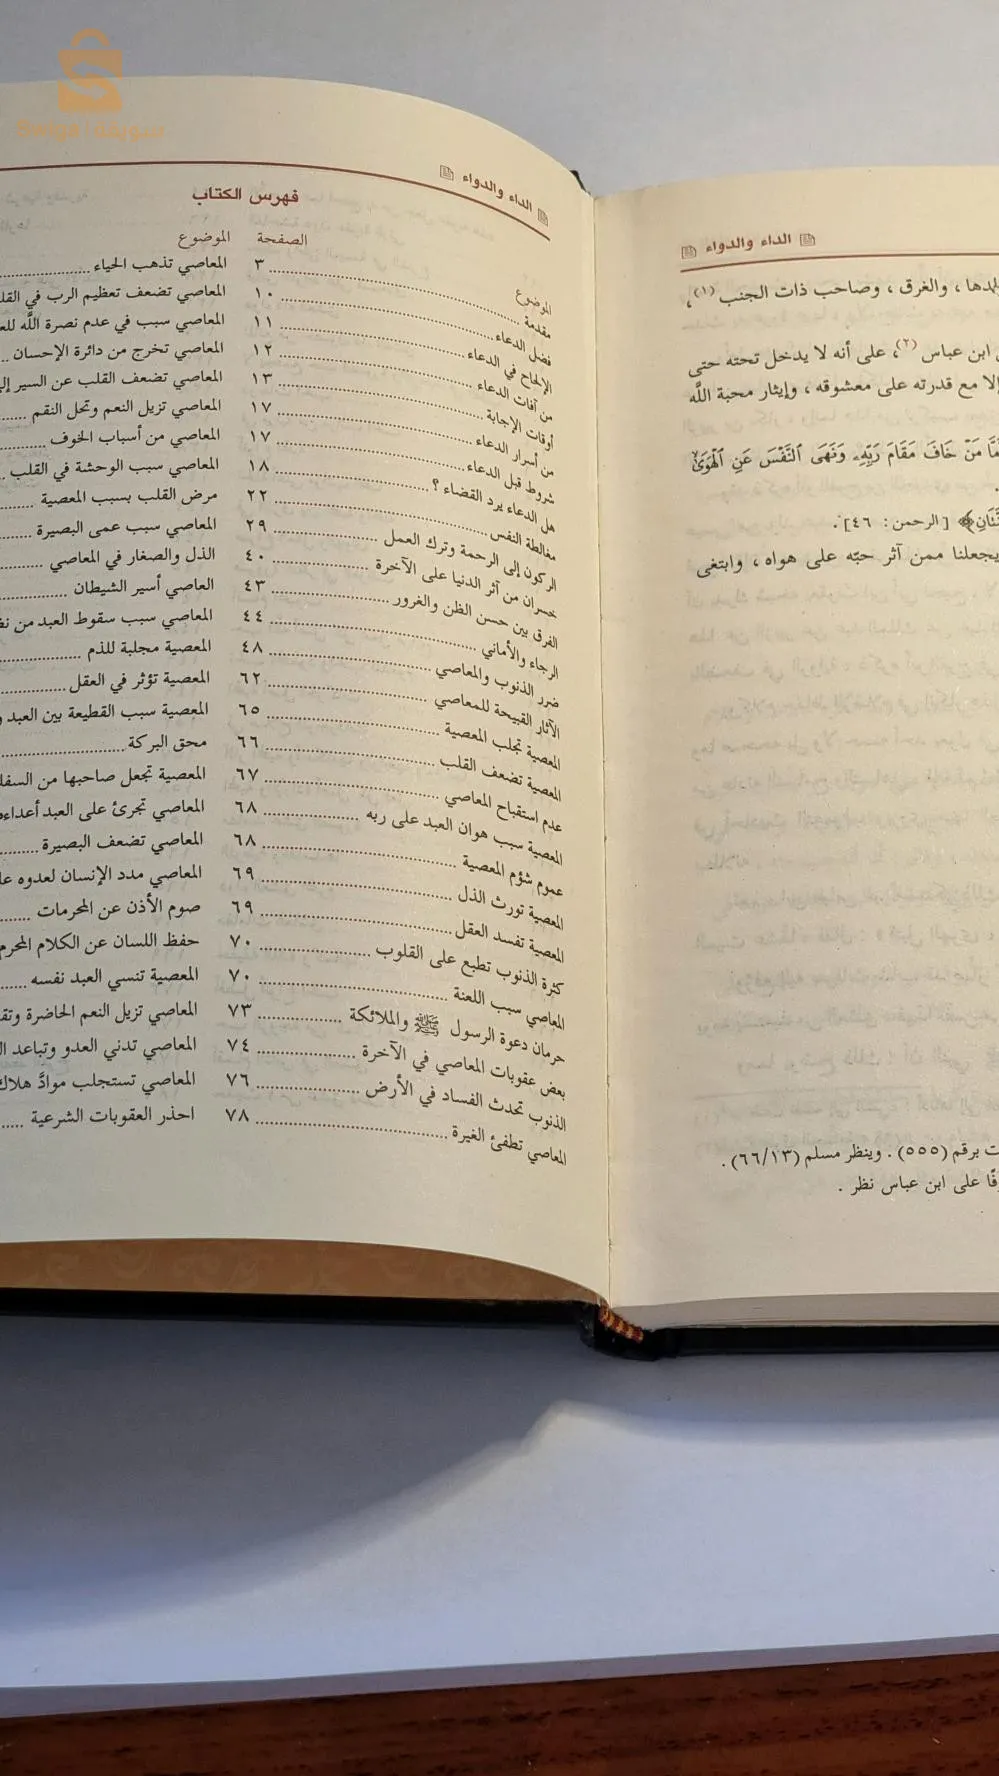 سويقة
الداء والدواء
لدها ، والغرق ، وصاحب ذات الجنب (١) ،
ابن عباس (٢) ، على أنه لا يدخل تحته حتى
إلا مع قدرته على معشوقه ، وإيثار محبة اللَّه
مَنْ خَافَ مَقَامَ رَبِّهِۦ وَنَهَى ٱلنَّفْسَ عَنِ ٱلْهَوَىٰ
[الرحمن: ٤٦] .
يجعلنا ممن آثر حبّه على هواه ، وابتغى
برقم (٥٥٥) . وينظر مسلم (٦٦/١٣) .
على ابن عباس نظر .
الداء والدواء
فهرس الكتاب
الموضوع الصفحة
مقدمة ٣
فضل الدعاء ١٠
الإلحاح في الدعاء ١١
من آفات الدعاء ١٢
أوقات الإجابة ١٣
من أسرار الدعاء ١٧
شروط قبل الدعاء ١٧
هل الدعاء يرد القضاء ؟ ١٨
مغالطة النفس ٢٢
الركون إلى الرحمة وترك العمل ٢٩
خسران من آثر الدنيا على الآخرة ٤٠
الفرق بين حسن الظن والغرور ٤٣
الرجاء والأماني ٤٤
ضرر الذنوب والمعاصي ٤٨
الآثار القبيحة للمعاصي ٦٢
المعصية تجلب المعصية ٦٥
المعصية تضعف القلب ٦٦
عدم استقباح المعاصي ٦٧
المعصية سبب هوان العبد على ربه ٦٨
عموم شؤم المعصية ٦٨
المعصية تورث الذل ٦٩
المعصية تفسد العقل ٦٩
كثرة الذنوب تطبع على القلوب ٧٠
المعاصي سبب اللعنة ٧٠
حرمان دعوة الرسول ﷺ والملائكة ٧٣
بعض عقوبات المعاصي في الآخرة ٧٤
الذنوب تحدث الفساد في الأرض ٧٦
المعاصي تطفئ الغيرة ٧٨
الموضوع
المعاصي تذهب الحياء
المعاصي تضعف تعظيم الرب في
المعاصي سبب في عدم نصرة اللَّه
المعاصي تخرج من دائرة الإحسان
المعاصي تضعف القلب عن السير
المعاصي تزيل النعم وتحل النقم
المعاصي من أسباب الخوف
المعاصي سبب الوحشة في القلب
مرض القلب بسبب المعصية
المعاصي سبب عمى البصيرة
الذل والصغار في المعاصي
العاصي أسير الشيطان
المعاصي سبب سقوط العبد من
المعصية مجلبة للذم
المعصية تؤثر في العقل
المعصية سبب القطيعة بين العبد
محق البركة
المعصية تجعل صاحبها من
المعاصي تجرئ على العبد
المعاصي تضعف البصيرة
المعاصي مدد الإنسان لعدوه
صوم الأذن عن المحرمات
حفظ اللسان عن الكلام المحرم
المعصية تنسي العبد نفسه
المعاصي تزيل النعم الحاضرة
المعاصي تدني العدو وتباعد
المعاصي تستجلب موادَّ هلاك
احذر العقوبات الشرعية